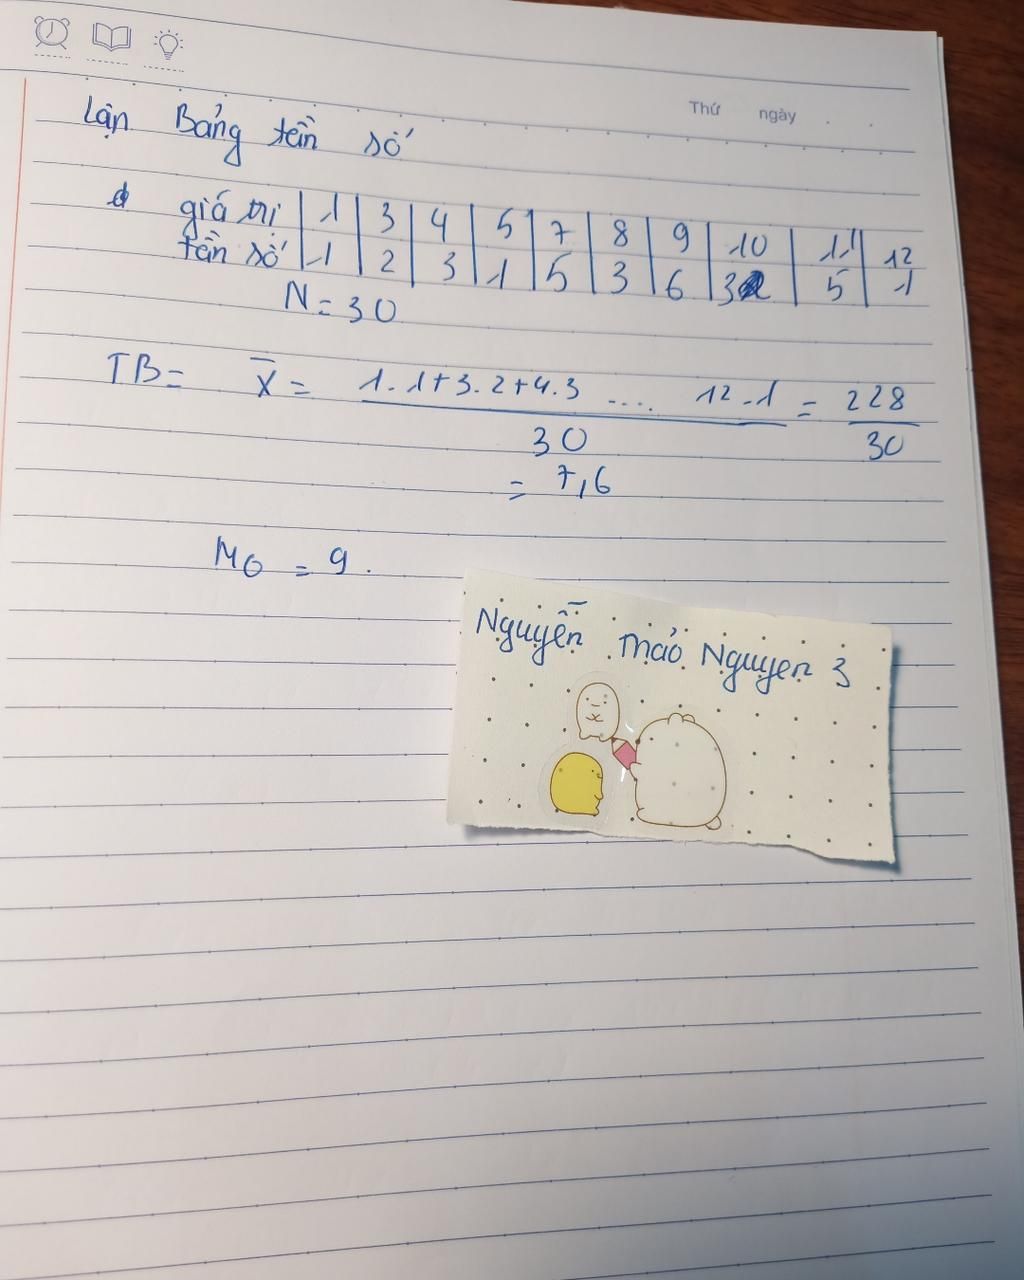 Thứ ngày . .
Lập Bảng tần số
giá trị | 1 | 3 | 4 | 5 | 7 | 8 | 9 | 10 | 11 | 12
tần số | 1 | 2 | 3 | 1 | 5 | 3 | 6 | 3 | 5 | 1
N = 30
TB = X̄ = 1.1+3.2+4.3 .... 12.1 = 228
30 30
= 7,6
M0 = 9.
Nguyễn Thảo Nguyen 3